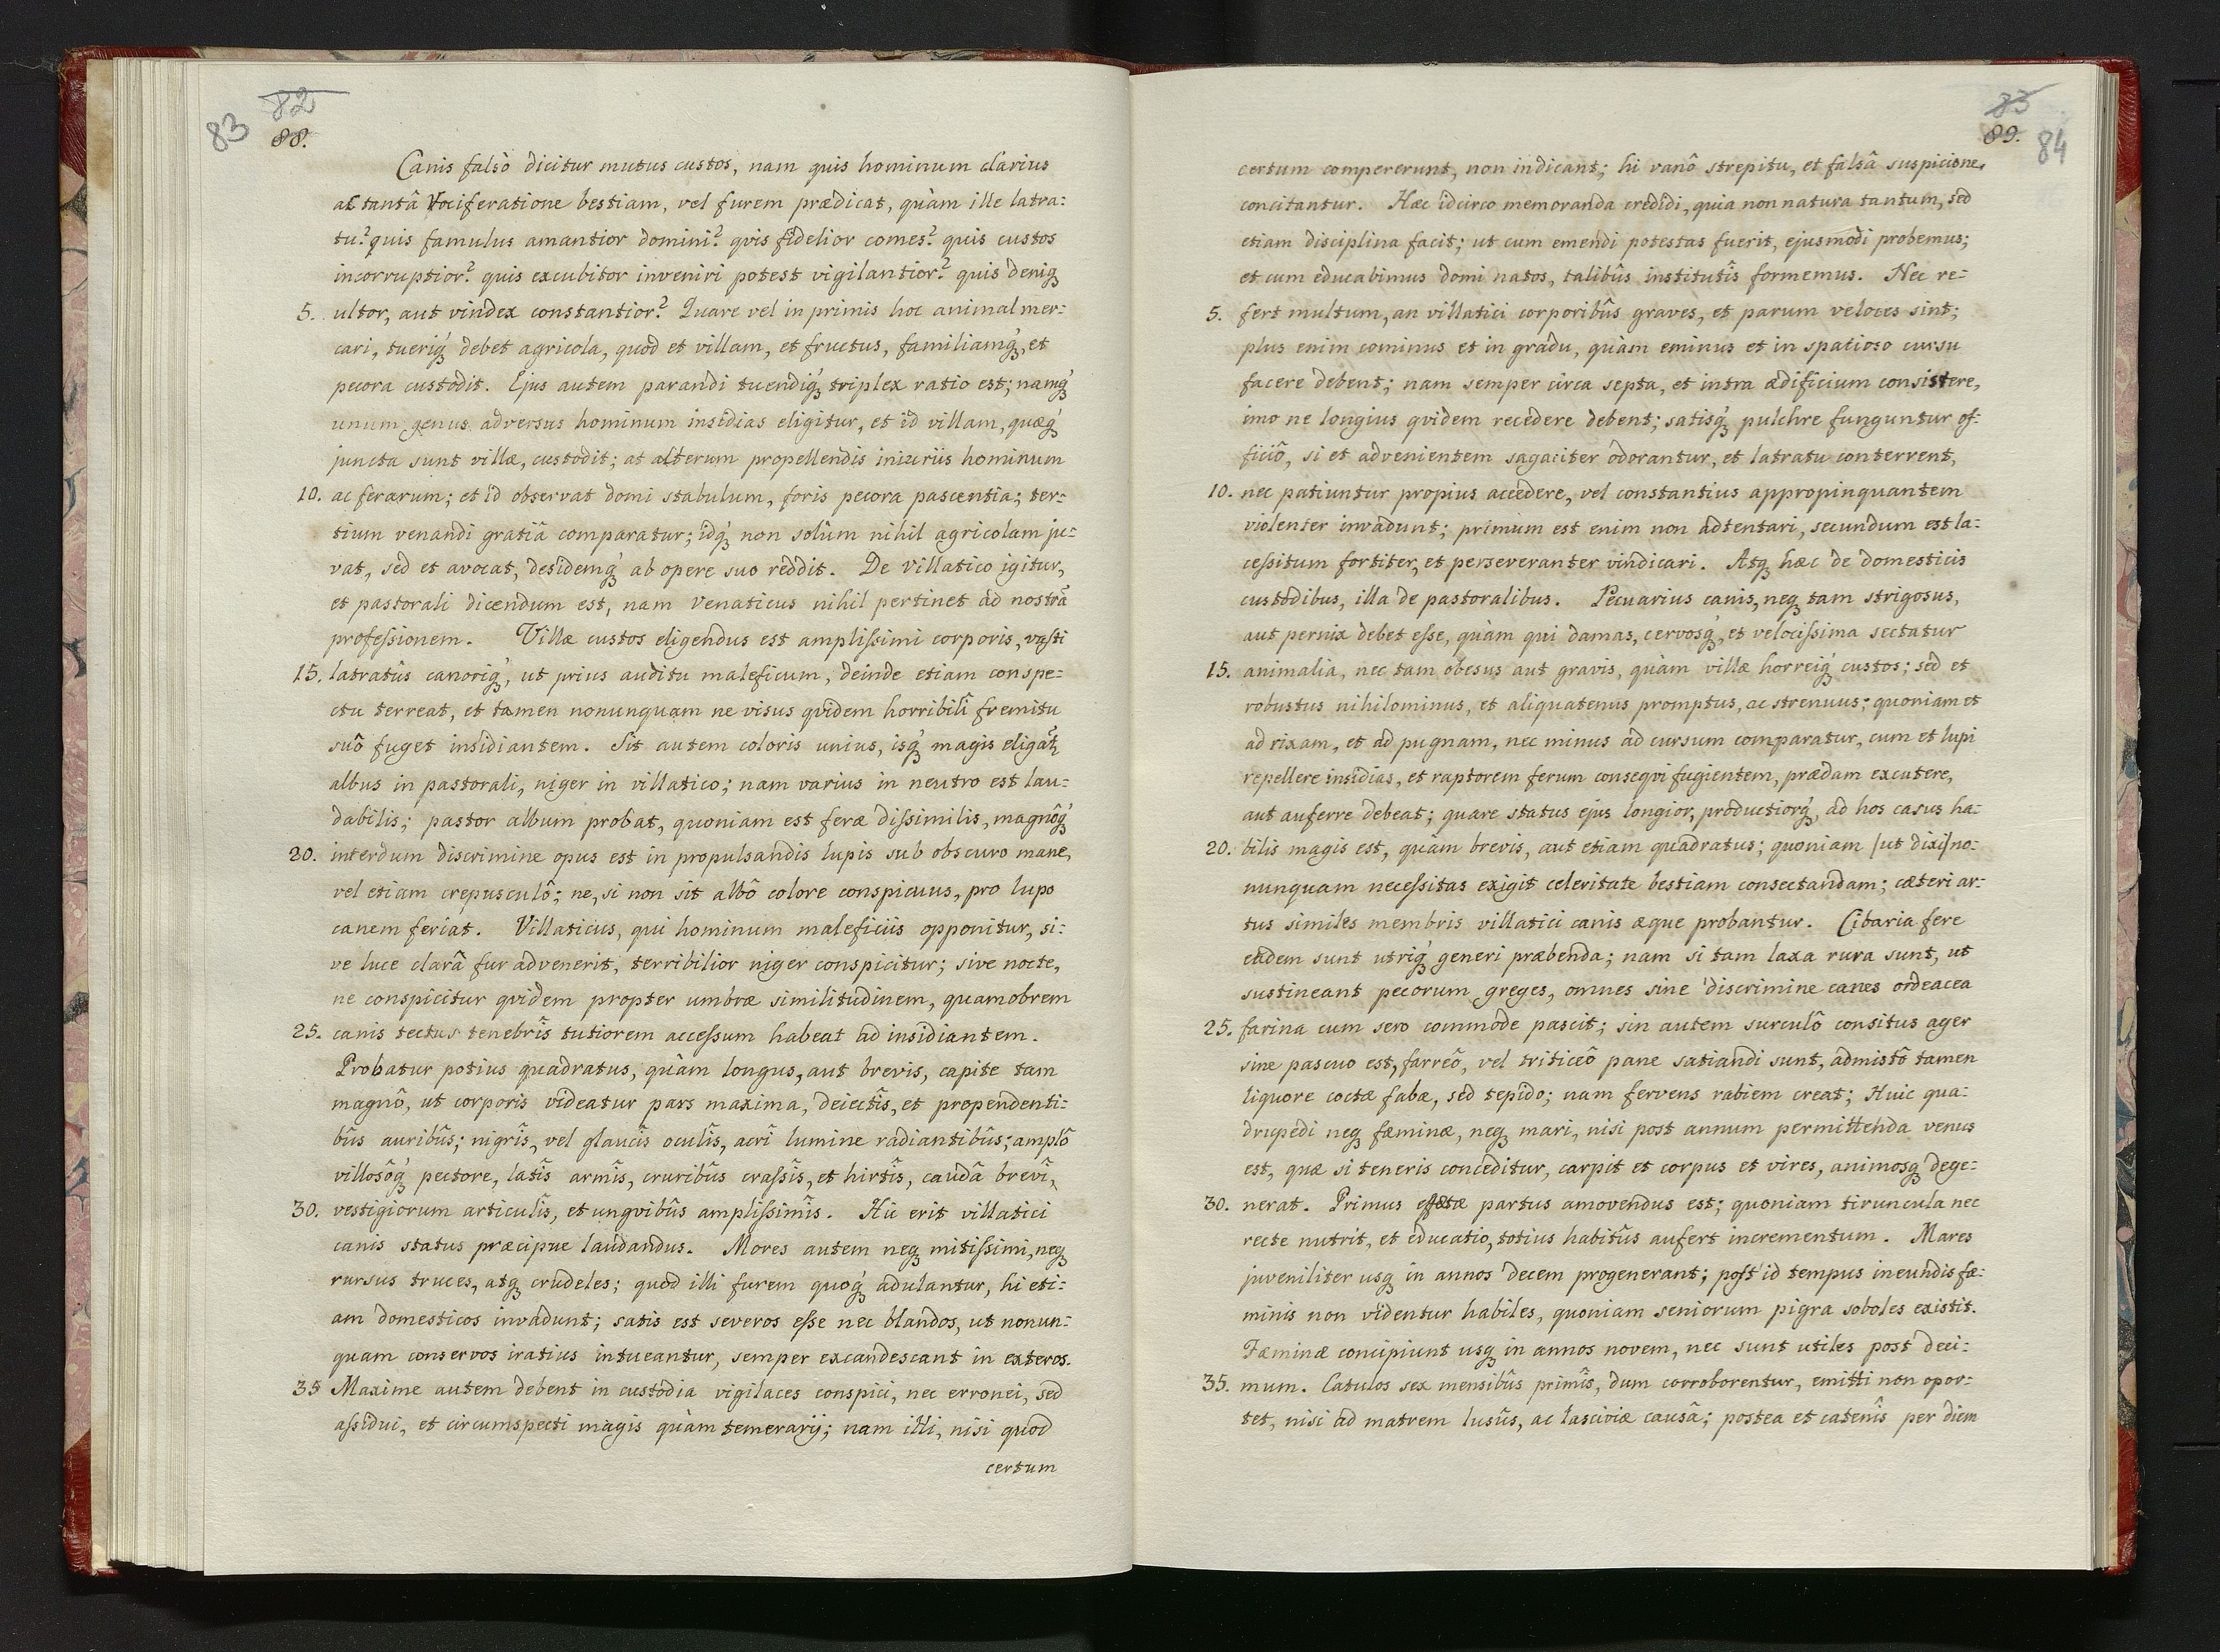 83 82
88.
Canis falsò dicitur mutus custos, nam quis hominum clarius
ac tantâ Vociferatione bestiam, vel furem prædicat, quàm ille latra:
tu? quis famulus amantior domini? qvis fidelior comes? quis custos
incorruptior? quis excubitor inveniri potest vigilantior? quis deniq́
5. ultor, aut vindex constantior? Quare vel in primis hoc animal mer:
cari, tueriq́ debet agricola, quod et villam, et fructus, familiamq́, et
pecora custodit. Ejus autem parandi tuendiq́ triplex ratio est; namq́
unum genus adversus hominum insidias eligitur, et id villam, quæq́
juncta sunt villæ, custodit; at alterum propellendis iniuriis hominum
10. ac ferarum; et id observat domi stabulum, foris pecora pascentia; ter:
tium venandi gratiâ comparatur; idq́ non solùm nihil agricolam ju:
vat, sed et avocat, desidemq́ ab opere suo reddit. De Villatico igitur,
et pastorali dicendum est, nam Venaticus nihil pertinet ad nostrã
professionem. Villæ custos eligendus est amplissimi corporis, vasti
15. latratûs canoriq́, ut prius auditu maleficum, deinde etiam conspe:
ctu terreat, et tamen nonunquam ne visus qvidem horribilî fremitu
suô fuget insidiantem. Sit autem coloris unius, isq́ magis eligat̃,
albus in pastorali, niger in villatico; nam varius in neutro est lau:
dabilis; pastor album probat, quoniam est feræ dissimilis, magnôq́
20. interdum discrimine opus est in propulsandis lupis sub obscuro mane,
vel etiam crepusculô; ne, si non sit albô colore conspicuus, pro lupo
canem feriat. Villaticus, qui hominum maleficiis opponitur, si:
ve luce clarâ fur advenerit, terribilior niger conspicitur; sive nocte,
ne conspicitur qvidem propter umbræ similitudinem, quamobrem
25. canis tectus tenebrîs tutiorem accessum habeat ad insidiantem.
Probatur potius quadratus, quàm longus, aut brevis, capite tam
magnô, ut corporis videatur pars maxima, deiectîs, et propendenti:
bûs auribûs; nigrîs, vel glaucîs oculîs, acrî lumine radiantibûs; amplô
villosôq́ pectore, latîs armîs, cruribûs crassîs, et hirtîs, caudâ brevî,
30. vestigiorum articulîs, et ungvibûs amplissimîs. Hic erit villatici
canis status præcipue laudandus. Mores autem neq́ mitissimi, neq́
rursus truces, atq́ crudeles; quod illi furem quoq́ adulantur, hi eti:
am domesticos invadunt; satis est severos esse nec blandos, ut nonun:
quam conservos iratius intueantur, semper excandescant in exteros.
35 Maxime autem debent in custodia vigilaces conspici, nec erronei, sed
assidui, et circumspecti magis quàm temerarij; nam illi, nisi quod
certum
83
89. 84
certum compererunt, non indicant; hi vanô strepitu, et falsâ suspicione,
concitantur. Hæc idcirco memoranda credidi, quia non natura tantum, sed
etiam disciplina facit; ut cum emendi potestas fuerit, ejusmodi probemus;
et cum educabimus domi natos, talibûs institutîs formemus. Nec re:
5. fert multum, an villatici corporibûs graves, et parum veloces sint;
plus enim cominus et in gradu, quàm eminus et in spatioso cursu
facere debent; nam semper circa septa, et intra ædificium consistere,
imo ne longius qvidem recedere debent; satisq́ pulchre funguntur of:
ficiô, si et advenientem sagaciter odorantur, et latratu conterrent,
10. nec patiuntur propius accedere, vel constantius appropinquantem
violenter invadunt; primum est enim non adtentari, secundum est la:
cessitum fortiter, et perseveranter vindicari. Atq́ hæc de domesticis
custodibus, illa de pastoralibus. Pecuarius canis, neq́ tam strigosus,
aut pernix debet esse, quàm qui damas, cervosq́, et velocissima sectatur
15. animalia, nec tam obesus aut gravis, quàm villæ horreiq́ custos; sed et
robustus nihilominus, et aliquatenus promptus, ac strenuus; quoniam et
ad rixam, et ad pugnam, nec minus ad cursum comparatur, cum et lupi
repellere insidias, et raptorem ferum conseqvi fugientem, prædam excutere,
aut auferre debeat; quare status ejus longior, productiorq́, ad hos casus ha:
20. bilis magis est, quàm brevis, aut etiam quadratus; quoniam /ut dixi/ no:
nunquam necessitas exigit celeritate bestiam consectandam; cæteri ar:
tus similes membris villatici canis æque probantur. Cibaria fere
eadem sunt utriq́ generi præbenda; nam si tam laxa rura sunt, ut
sustineant pecorum greges, omnes sine discrimine canes ordeacea
25. farina cum sero commode pascit; sin autem surculô consitus ager
sine pascuo est, farreô, vel triticeô pane satiandi sunt, admistô tamen
liquore coctæ fabæ, sed tepido; nam fervens rabiem creat; Huic qua:
drupedi neq́ fæminæ, neq́ mari, nisi post annum permittenda venus
est, quæ si teneris conceditur, carpit et corpus et vires, animosq́ dege:
30. nerat. Primus effætæ partus amovendus est; quoniam tiruncula nec
recte nutrit, et educatio, totius habitûs aufert incrementum. Mares
juveniliter usq́ in annos decem progenerant; post id tempus ineundis fæ:
minis non videntur habiles, quoniam seniorum pigra soboles existit.
Fæminæ concipiunt usq́ in annos novem, nec sunt utiles post deci:
35. mum. Catulos sex mensibûs primîs, dum corroborentur, emitti non opor:
tet, nisi ad matrem lusûs, ac lasciviæ causâ; postea et catenîs per diem